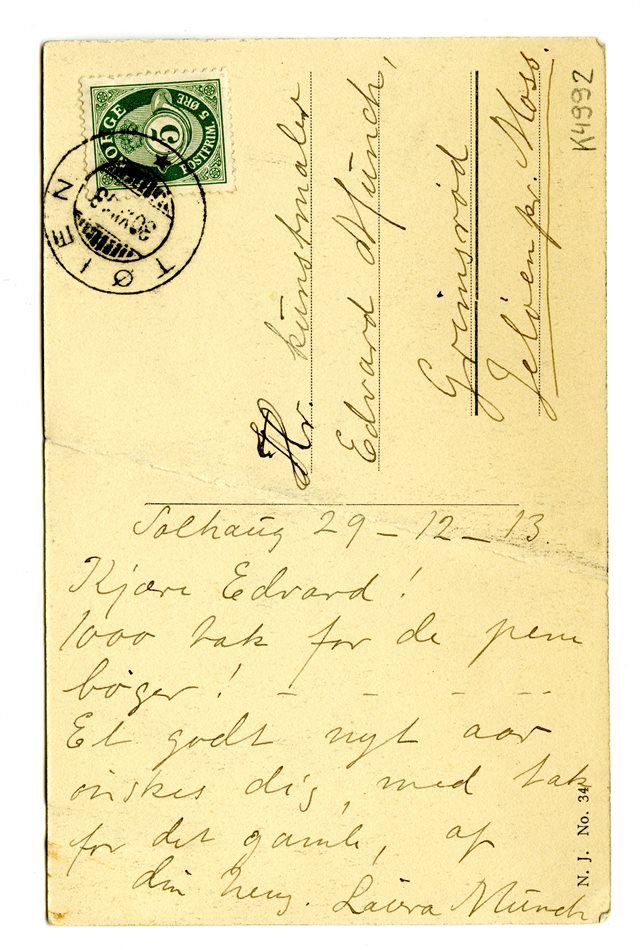 NORGE
5
POSTFRIM. 5 ØRE
TØIEN
Hr. kunstmaler
Edvard Munch,
Grimsrød
Jeløen pr. Moss.
K4992
Solhaug 29-12-13.
Kjære Edvard!
1000 tak for de pene
bøger! - - - - -
Et godt nyt aar
ønskes dig, med tak
for det gamle, af
din heng. Laura Munch
N. J. No. 34